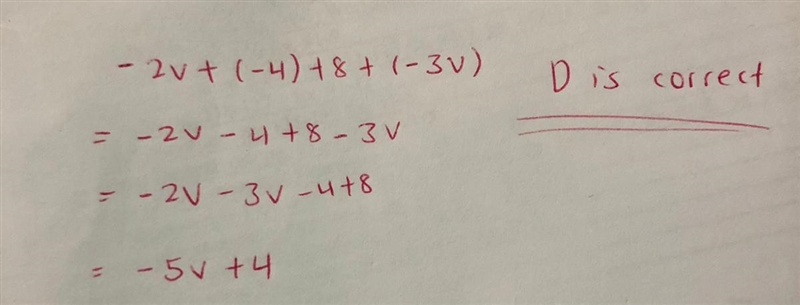 -2v + (-4) + 8 + (-3v)
= -2v - 4 + 8 - 3v
= -2v - 3v - 4 + 8
= -5v + 4
D is correct